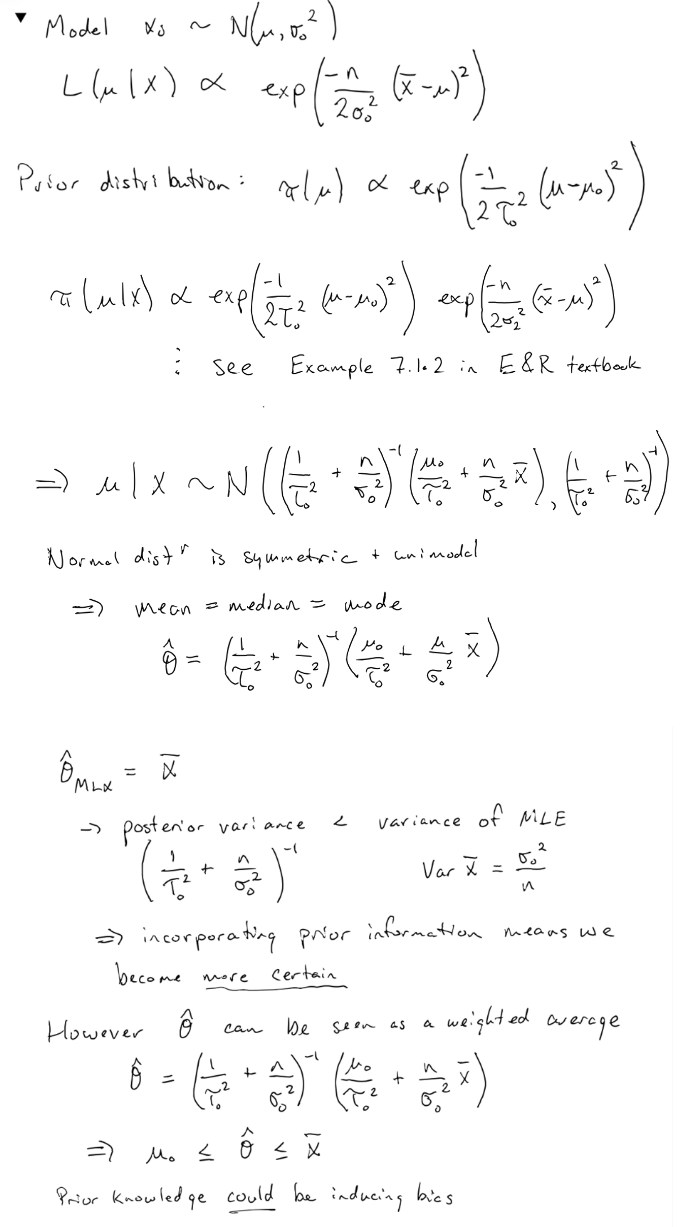 ▼ Model xs ~ N(μ, σ₀²)
L(μ|x) ∝ exp(-n/2σ₀² (x̄-μ)²)
Prior distribution: π(μ) ∝ exp(-1/2τ₀² (μ-μ₀)²)
π(μ|x) ∝ exp(-1/2τ₀² (μ-μ₀)²) exp(-n/2σ₂² (x̄-μ)²)
⋮ see Example 7.1.2 in E&R textbook
⇒ μ|x ~ N((1/τ₀² + n/σ₀²)⁻¹ (μ₀/τ₀² + n/σ₀² x̄), (1/τ₀² + n/σ₀²)⁻¹)
Normal distʳ is symmetric + unimodel
⇒ mean = median = mode
θ̂ = (1/τ₀² + n/σ₀²)⁻¹ (μ₀/τ₀² + μ/σ₀² x̄)
θ̂MLX = x̄
→ posterior variance < variance of MLE
(1/τ₀² + n/σ₀²)⁻¹ Var x̄ = σ₀²/n
⇒ incorporating prior information means we
become more certain
However θ̂ can be seen as a weighted average
θ̂ = (1/τ₀² + n/σ₀²)⁻¹ (μ₀/τ₀² + n/σ₀² x̄)
⇒ μ₀ ≤ θ̂ ≤ x̄
Prior knowledge could be inducing bias